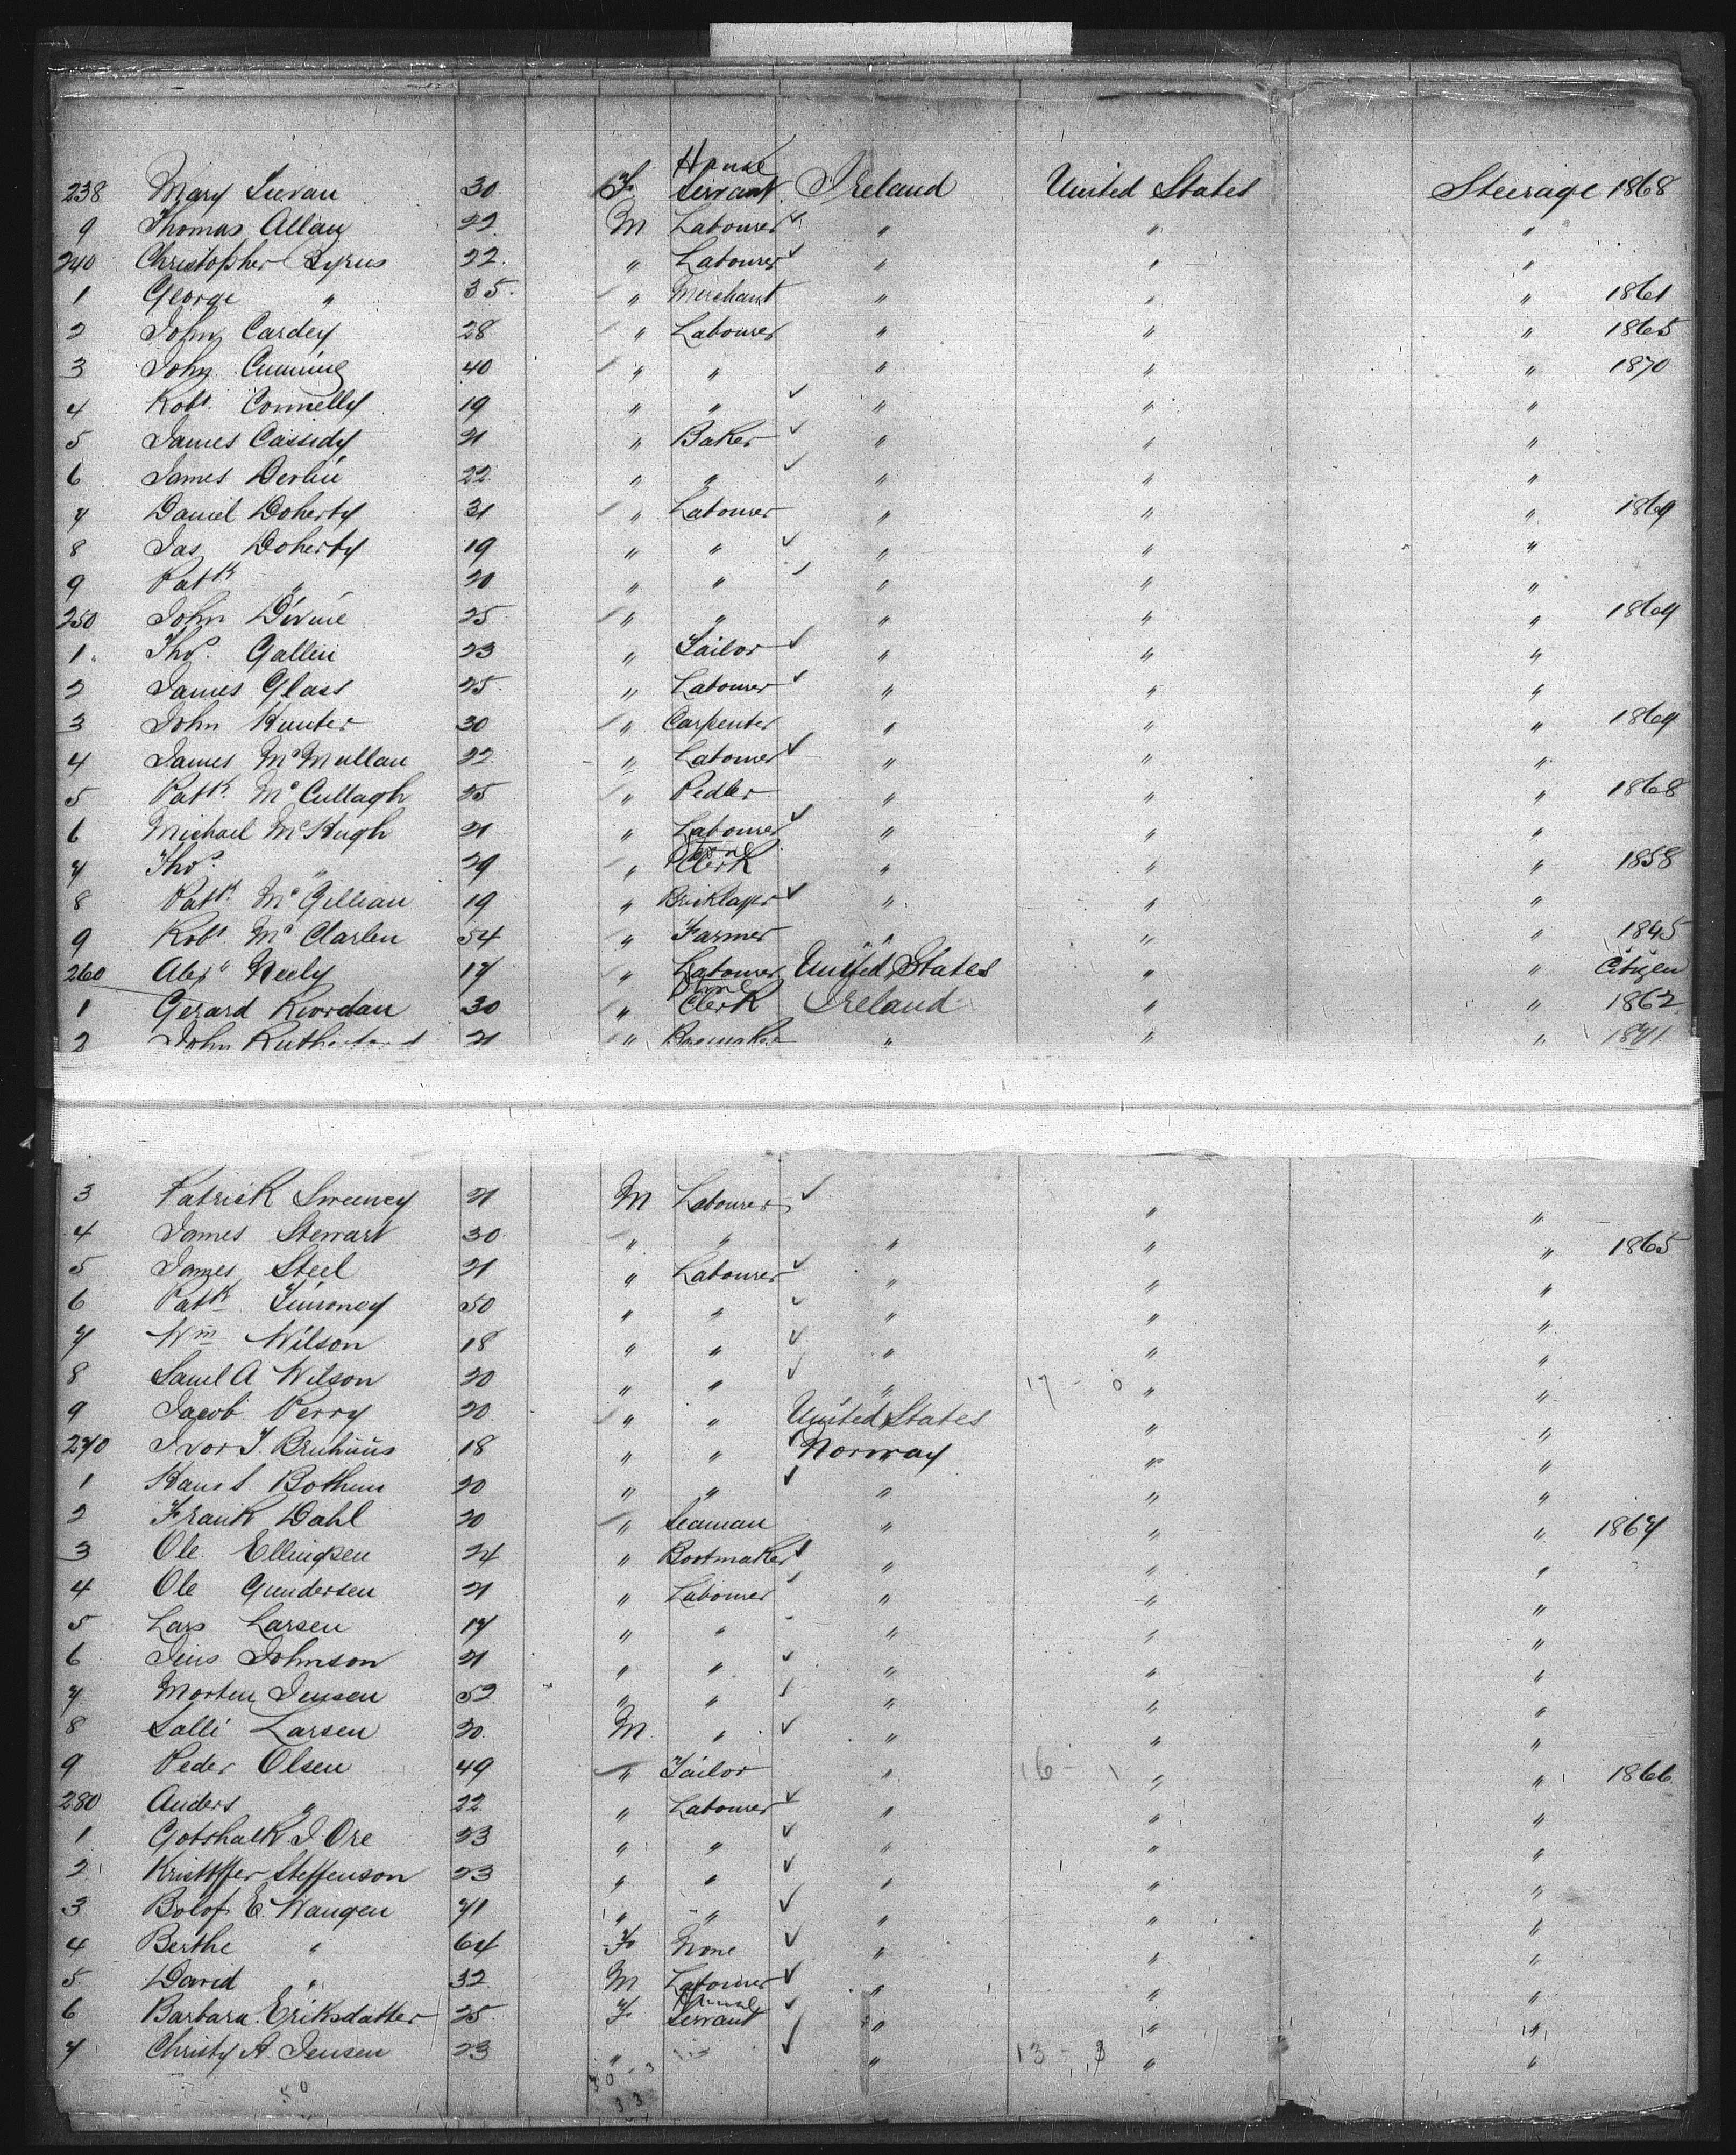 238 Mary Luvan 30 F House Servant Ireland United States Steerage 1868
9 Thomas Allan 22 M Labourer ✓ " " "
240 Christopher Byrus 22. " Labourer ✓ " " "
1 George " 35. " Merchant " " " 1861
2 John Cardey 28 " Labourer " " " 1865
3 John Cumming 40 " " " " " 1870
4 Robt. Connelly 19 " " ✓ " " "
5 James Cassidy 21 " Baker ✓ " " "
6 James Derlin 22 " " ✓ " " "
7 Daniel Doherty 31 " Labourer " " " 1869
8 Jas Doherty 19 " " ✓ " " "
9 Patk " 20 " " ✓ " " "
250 John Divine 25 " " " " " 1869
1 Thos. Gallin 23 " Tailor ✓ " " "
2 James Glass 25. " Labourer ✓ " " "
3 John Hunter 30 " Carpenter " " " 1869
4 James McMullan 22 " Labourer ✓ " " "
5 Patk. McCullagh 25 " Pedler " " " 1868
6 Michael McHugh 21 " Labourer ✓ " " "
7 Thos. " 29 " Clerk " " " 1858
8 Patk. McGillian 19 " Bricklayr ✓ " " "
9 Robt. McClarlen 54 " Farmer " " " 1845
260 Alexr Neely 17 " Labourer United States " " Citizen
1 Gerard Riordan 30 " Clerk Ireland " " 1862
2 John Rutherford 21 " " " " 1871
3 Patrick Sweeney 21 M Labourer ✓ " "
4 James Stewart 30 " " " " " 1865
5 James Steel 21 " Labourer ✓ " " "
6 Patk Timoney 50 " " ✓ " " "
7 Wm Wilson 18 " " ✓ " " "
8 Saml A Wilson 20 " " ✓ " 17 - 0 " "
9 Jacob Perry 20 " " United States " "
270 Ivor T. Bruhuus 18 " " ✓ Norway " "
1 Hans S. Bothum 20 " " ✓ " " "
2 Frank Dahl 20 " Seaman " " " 1867
3 Ole Ellingsen 24 " Bootmaker ✓ " " "
4 Ole Gundersen 21 " Labourer ✓ " " "
5 Lars Larsen 17 " " " " "
6 Jens Johnson 21 " " ✓ " " "
7 Morten Jensen 52 " " ✓ " " "
8 Salli Larsen 20. M " ✓ " " "
9 Peder Olsen 49 " Tailor " 16 - 1 " " 1866
280 Anders " 22 " Labourer ✓ " " "
1 Gotshalk J Ore 23 " " ✓ " " "
2 Kristoffer Steffenson 23 " " ✓ " " "
3 Bolof E. Waugen 71 " " ✓ " " "
4 Berthe " 64 F None ✓ " " "
5 David " 32 M Labourer ✓ " " "
6 Barbara Eriksdatter 25. F House Servant ✓ " " "
7 Christy A. Jensen 23 " ✓ " 13 - 3 " "
50 30 - 3
33